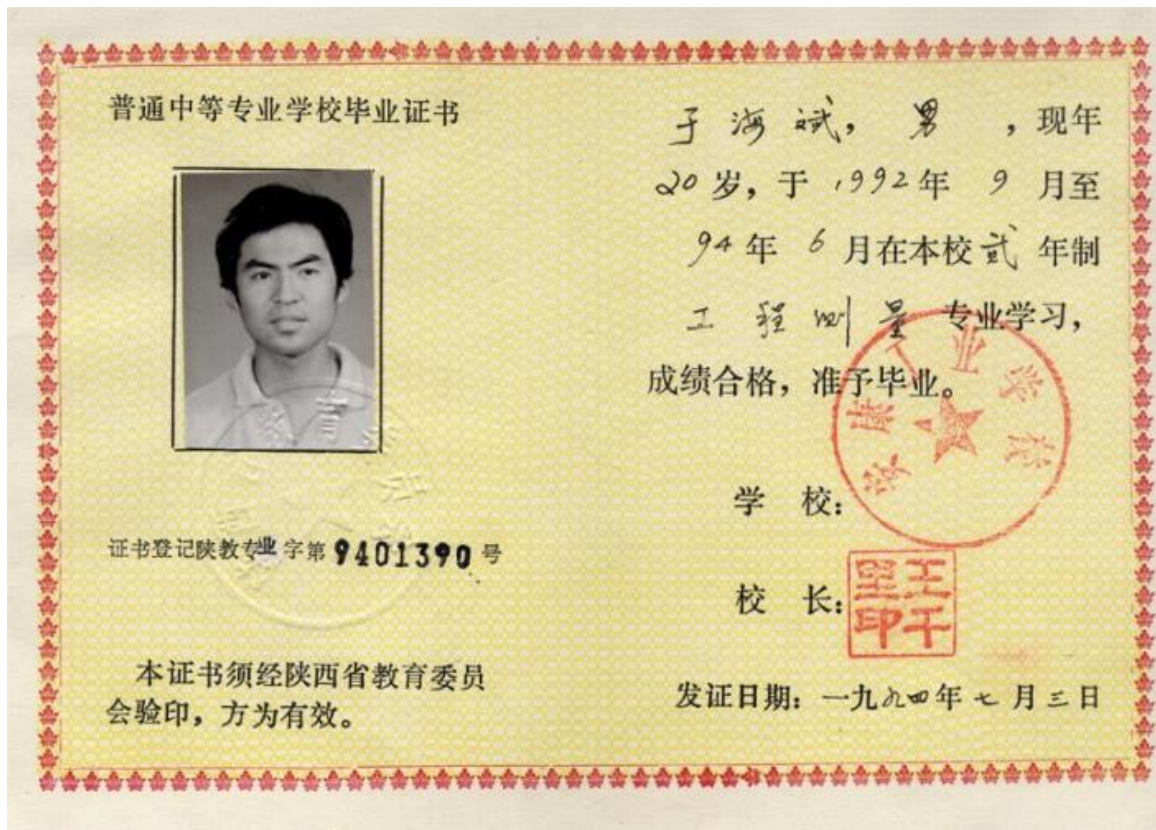 普通中等专业学校毕业证书
证书登记陕教专业字第9401390号
本证书须经陕西省教育委员
会验印，方为有效。
于海斌，男，现年
20岁，于1992年9月至
94年6月在本校贰年制
工程测量专业学习，
成绩合格，准予毕业。
学校：
安康工业学校
校长：
王千里印
发证日期：一九九四年七月三日